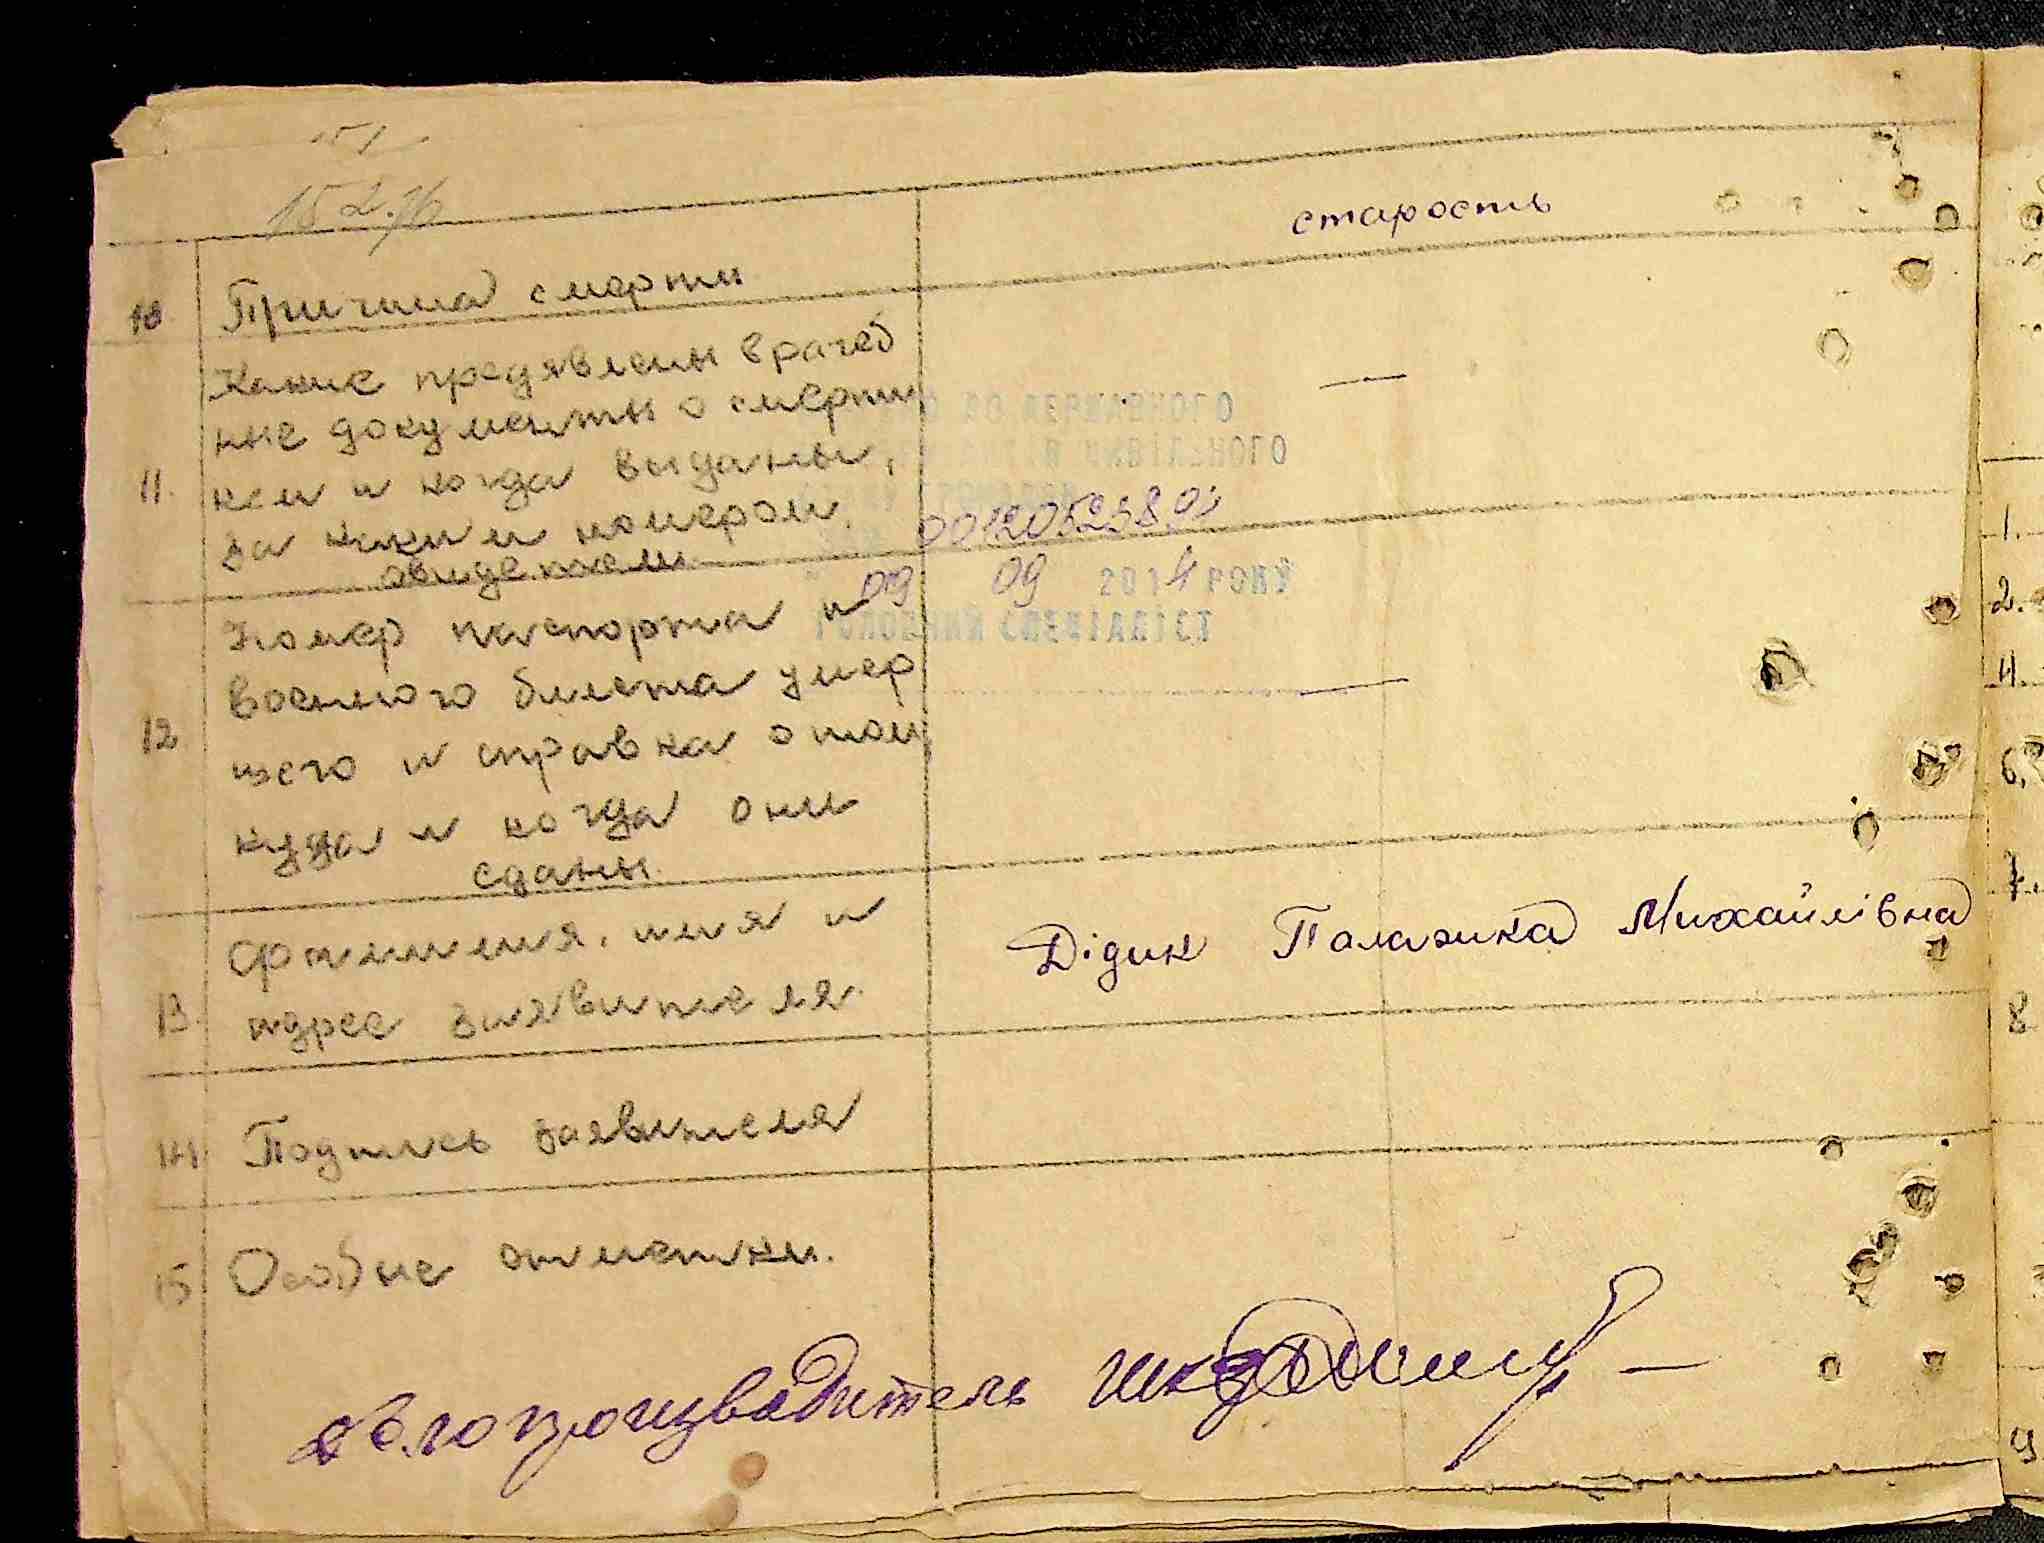 151
152.
старость
10. Причина смерти
Какие предявлены врачеб
ные документы о смерти
11. кем и когда выданы,
за каким номером.
свидетели
ДО ДЕРЖАВНОГО
ЦИВІЛЬНОГО
00120523801
09 09 2014 РОКУ
ГОЛОВНИЙ СПЕЦІАЛІСТ
Номер паспорта и
военного билета умер
12 шего и справка о том,
куда и когда они
сданы.
Фамилия, имя и
13. адрес заявителя.
Дідик Палажка Михайлівна
14 Подпись заявителя
15 Особые отметки.
Делопроизводитель
1.
2.
4.
6.
7.
8